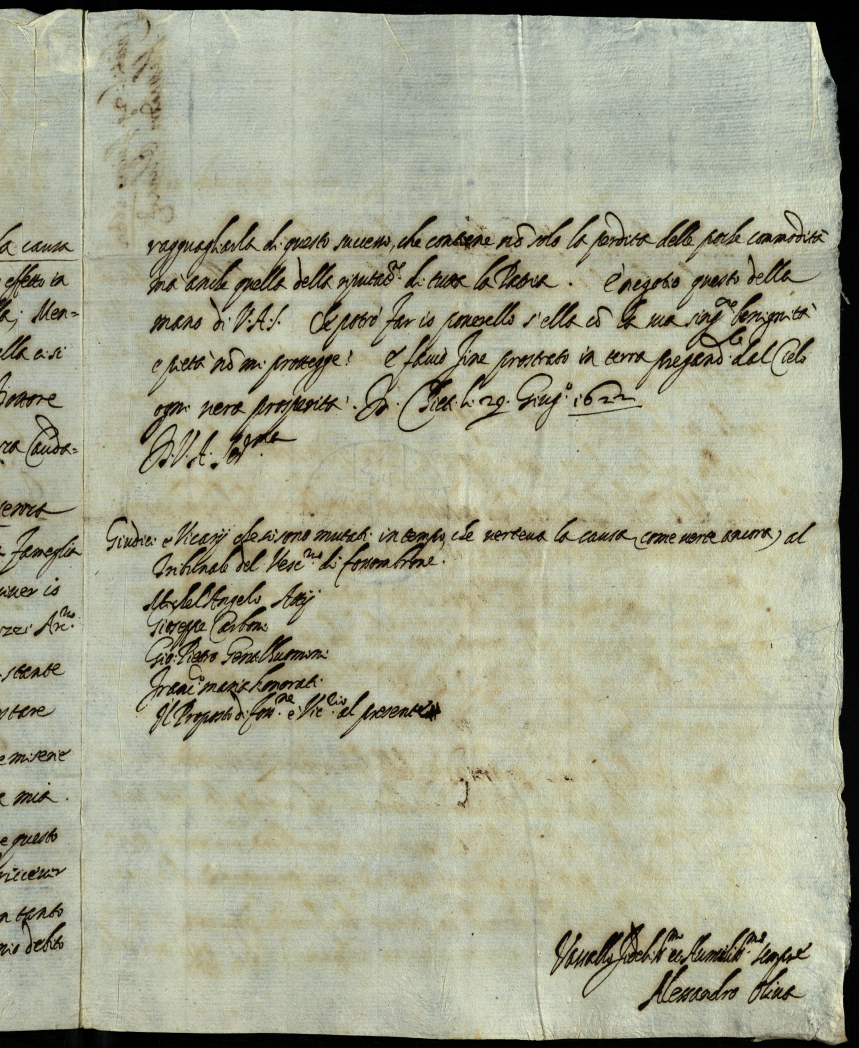 la causa
effetto in
Men=
ella e si
Dottore
Famiglia
Arc.no
stante
stare
e miserie
e mia .
e questo
riccever
n tanto
mio debito
ragguagliarla di questo successo, che contiene nõ solo la perdita delle poche commodità
ma anche quella della riputat.ne di tutta la . è negotio questo della
mano di V.A.S. Che potrò far io poverello s'ella cõ la sua sing.re benignità
e pietà nõ mi protegge! E faccio fine prostrato in terra pregandole dal Cielo
ogni vera prosperità. Di li 29. Giug.o 1622
D. V. A. Ser.ma
Giudici e Vicarij che si sono mutati in tempo, che verteva la causa, come verte ancora, al
Tribunale del Vesc.vo di fossombrone.
Michel'Angelo
Gioseppe Carboni
Gio: Pietro
Franc.o maria honorati
Il Proposto di foss.ne è Vic.rio al presente
Vassallo Fideliss.mo et Humiliss.mo sempre
Alessandro Oliva